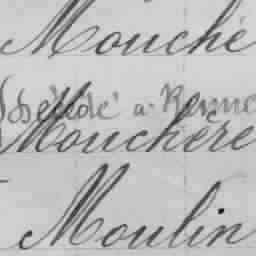 Mouché
Décédé à Renne
Mouchère
Moulin